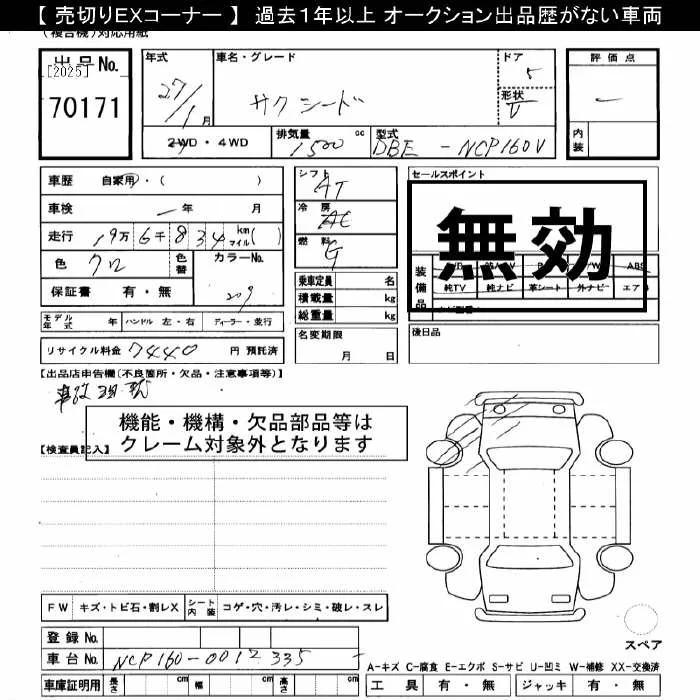 【 売切りEXコーナー 】 過去１年以上 オークション出品歴がない車両
(複合機)対応用紙
出品No.
[2025]
70171
年式
27/1月
車名・グレード
サクシード
ドア
5
形状
V
評価点
内装
2WD・4WD
排気量
1500 cc
型式
DBE - NCP160V
車歴 自家用・( )
車検 年 月
走行 19万6千834 km マイル( )
色 クロ 色替
カラーNo.
209
保証書 有・無
シフト AT
冷房 AC
燃料 G
乗車定員 名
積載量 kg
総重量 kg
名変期限
月 日
セールスポイント
無効
装備品
純TV 純ナビ 革シート 外ナビー エア
ABS
後日品
モデル年式 年 ハンドル 左・右 ディーラー・並行
リサイクル料金 7440 円 預託済
【出品店申告欄(不良箇所・欠品・注意事項等)】
事故現状
機能・機構・欠品部品等は
クレーム対象外となります
【検査員記入】
FW キズ・トビ石・割レX シート内装 コゲ・穴・汚レ・シミ・破レ・スレ
登録No.
車台No. NCP160-0012335
車庫証明用 長さ cm 幅 cm 高さ cm
スペア
A-キズ C-腐食 E-エクボ S-サビ U-凹ミ W-補修 XX-交換済
工具 有・無 ジャッキ 有・無